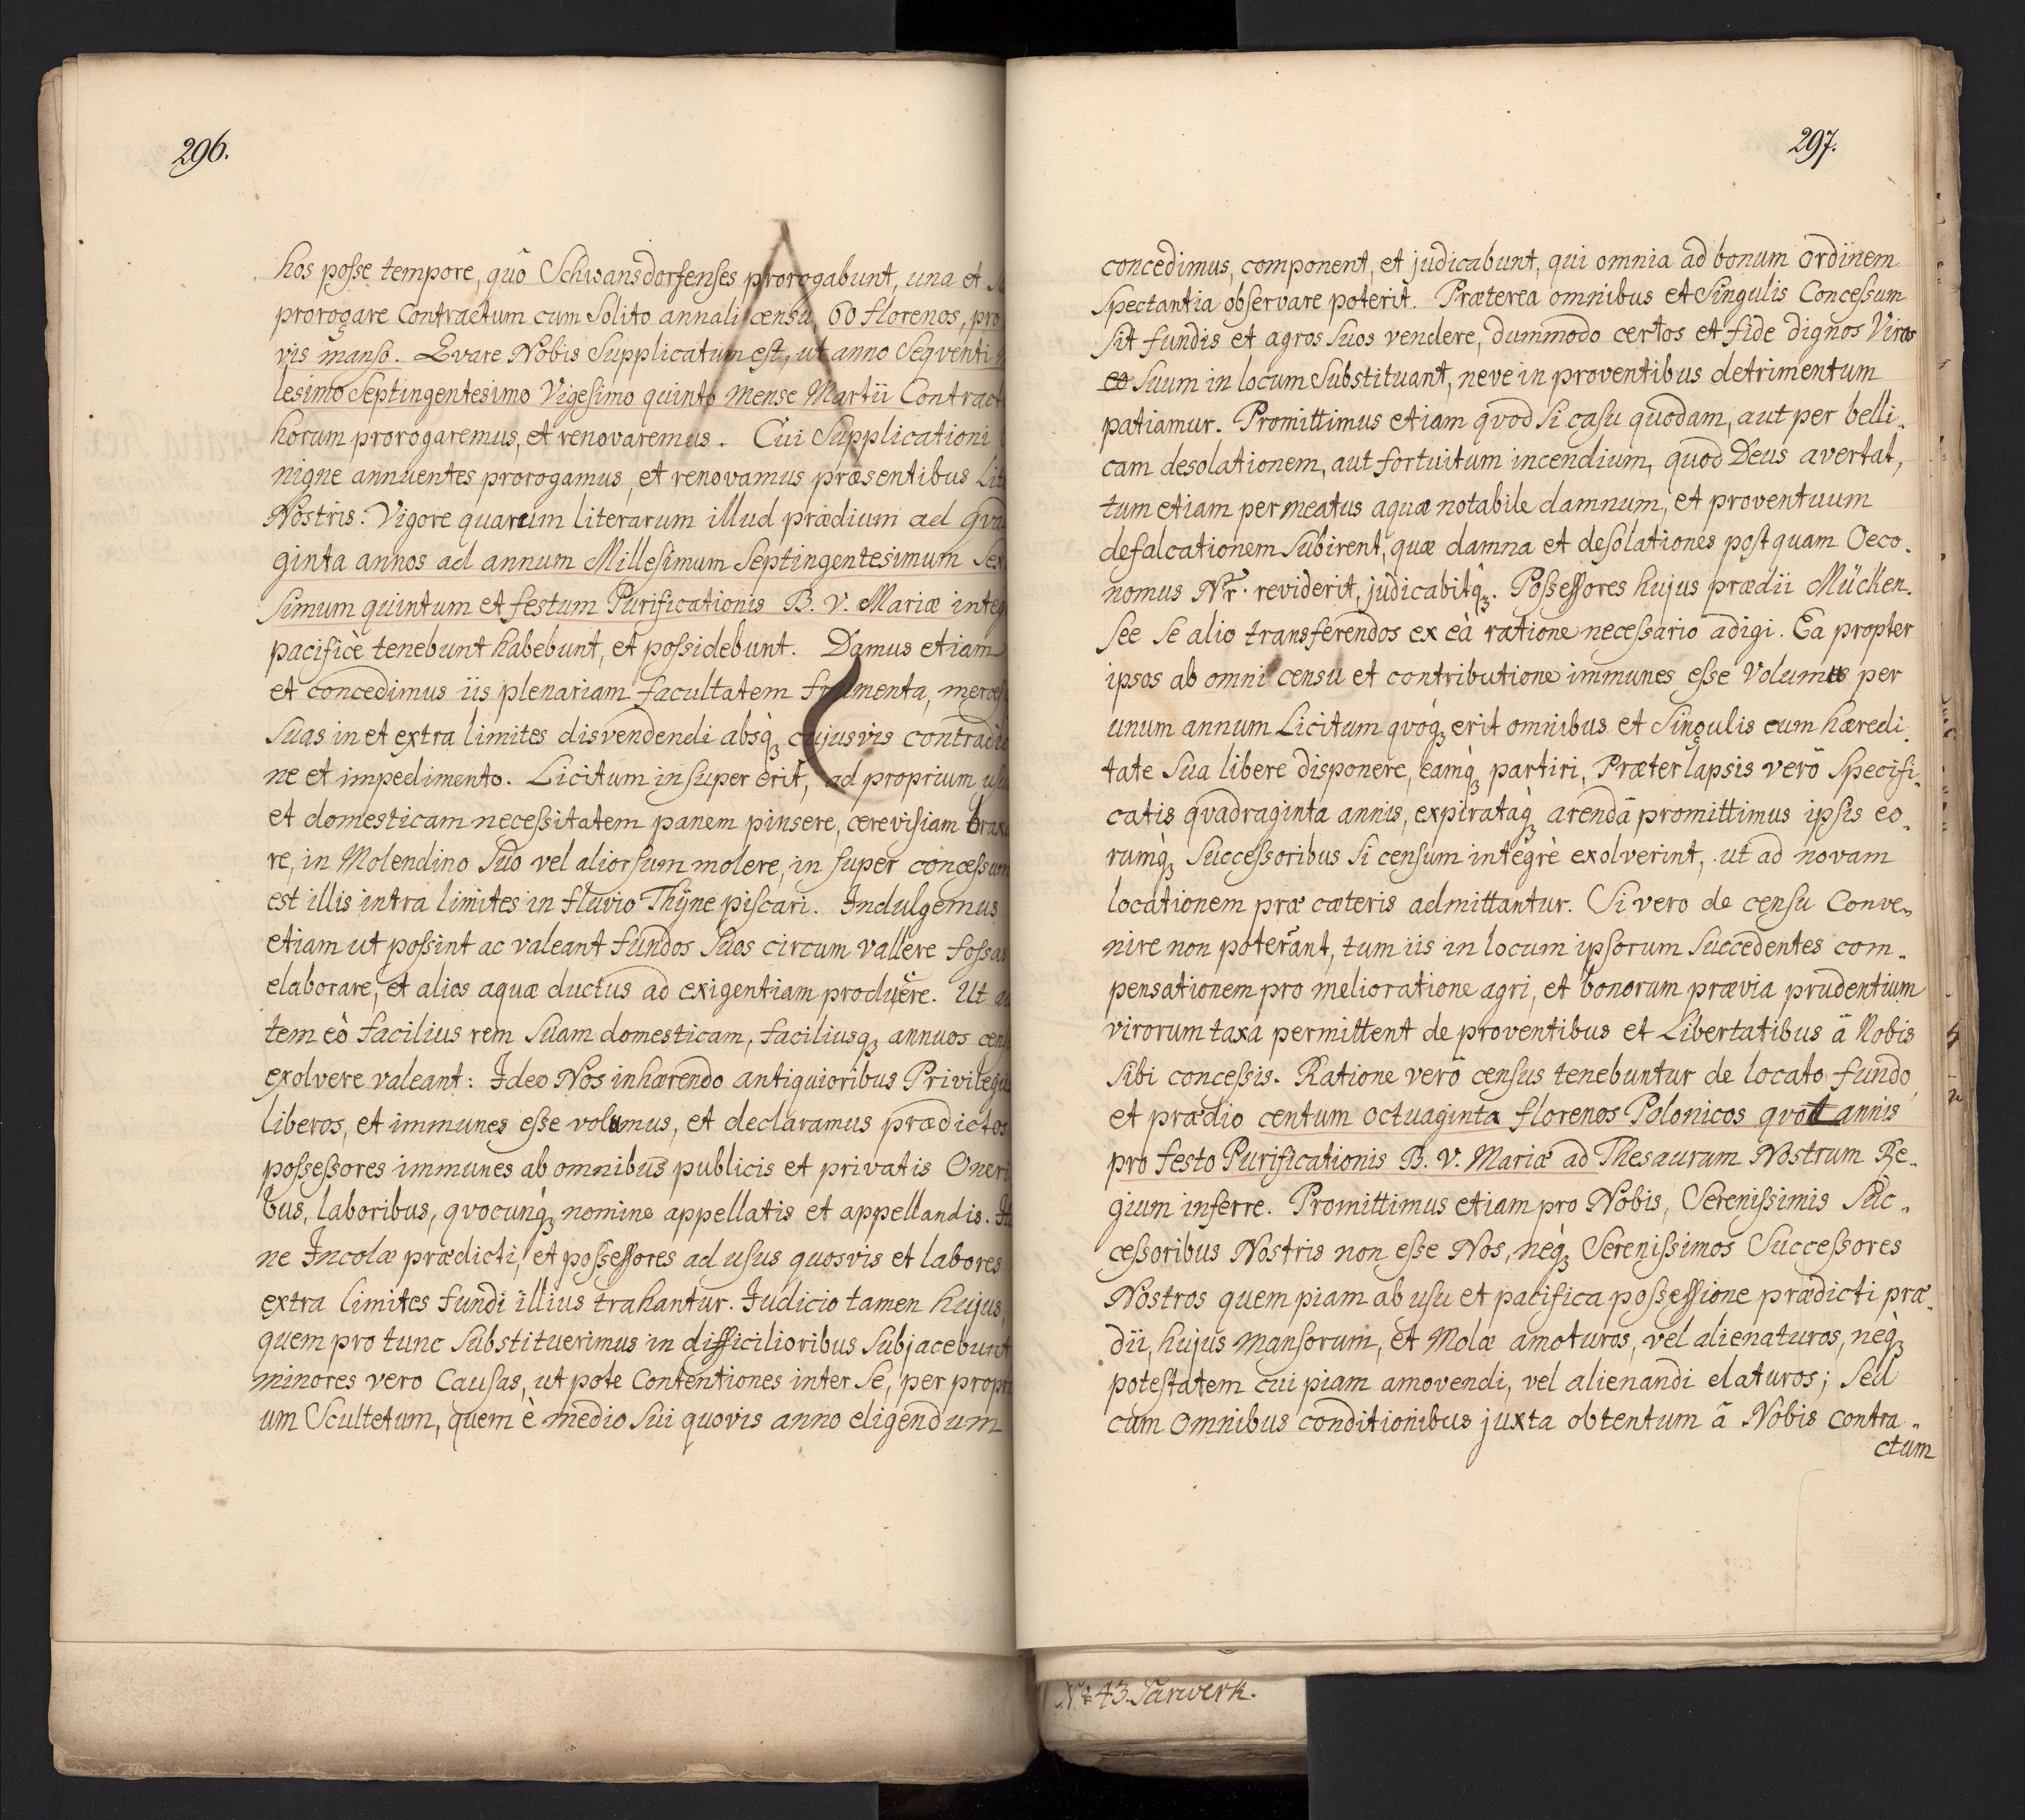 296.
hos posse tempore, quô Schwansdorfenses prorogabunt, una et
prorogare Contractum cum Solito annali censu, 60 florenos, pro
vis manso. Qvare Nobis Supplicatum est, ut anno Seqventi
lesimo Septingentesimo Vigesimo quinto mense Martii Contract
horum prorogaremus, et renovaremus. Cui Supplicationi
nigne annuentes prorogamus, et renovamus præsentibus Lit
Nostris. Vigore quarum literarum illud prædium ad qva
ginta annos ad annum Millesimum Septingentesimum Sex
simum quintum et festum Purificationis B. V. Mariæ integ
pacificè tenebunt habebunt, et possidebunt. Damus etiam
et concedimus iis plenariam facultatem frumenta, merces
Suas in et extra limites disvendendi absq̀ʒ cujusvis contradic
ne et impedimento. Licitum insuper erit, ad proprium usu
et domesticam necessitatem panem pinsere, cerevisiam braxa
re, in Molendino Suo vel aliorsum molere, in super concessum
est illis intra limites in fluvio Thÿne piscari. Indulgemus
etiam ut possint ac valeant fundos Suos circum vallere fossas
elaborare, et alios aquæ ductus ad exigentiam producere. Ut au
tem eò facilius rem Suam domesticam, faciliusqʒ annuos cens
exolvere valeant: Ideo Nos inhærendo antiquioribus Privilegiis
liberos, et immunes esse volumus, et declaramus prædictos
possessores immunes ab omnibus publicis et privatis Oneri
bus, laboribus, qvocunq̀ʒ nomine appellatis et appellandis. It
ne Incolæ prædicti, et possessores ad usus quosvis et labores
extra limites fundi illius trahantur. Iudicio tamen hujus,
quem pro tunc Substituerimus in difficilioribus Subjacebunt
minores vero Causas, ut pote Contentiones inter Se, per propri
um Scultetum, quem è medio Sui quovis anno eligendum
297.
concedimus, component, et judicabunt, qui omnia ad bonum ordinem
Spectantia observare poterit. Præterea omnibus et Singulis Concessum
Sit fundis et agros Suos vendere, dummodo certos et fide dignos Viros
eo Suum in locum Substituant, neve in proventibus detrimentum
patiamur. Promittimus etiam qvod Si casu quodam, aut per belli.
cam desolationem, aut fortuitum incendium, quod Deus avertat,
tum etiam per meatus aquæ notabile damnum, et proventuum
defalcationem Subirent, quæ damna et desolationes postquam Oeco.
nomus Nr. reviderit, judicabitq̀ʒ. Possessores hujus prædii Mücken.
See Se alio transferendos ex eà ratione necessario adigi. Ea propter
ipsos ab omni censu et contributione immunes esse Volumus per
unum annum Licitum qvóqʒ erit omnibus et Singulis cum hæredi.
tate Sua libere disponere, eamq̀ʒ partiri, Præter lapsis verò Specifi.
catis qvadraginta annis, expirataq̀ʒ arendâ promittimus ipsis eo.
rumq̀ʒ Successoribus Si censum integrè exolverint, ut ad novam
locationem præ cæteris admittantur. Si vero de censu Conve.
nire non poterant, tum iis in locum ipsorum Succedentes com.
pensationem pro melioratione agri, et bonorum prævia prudentium
virorum taxâ permittent de proventibus et Libertatibus â Nobis
Sibi concessis. Ratione verò census tenebuntur de locato fundo
et prædio centum octuaginta florenos Polonicos qvot annis
pro festo Purificationis B. V. Mariæ ad Thesaurum Nostrum Re.
gium inferre. Promittimus etiam pro Nobis, Serenissimis Suc.
cessoribus Nostris non esse Nos, neq̀ʒ Serenissimos Successores
Nostros quem piam ab usu et pacifica possessione prædicti præ.
dii, hujus mansorum, et Molæ amoturos, vel alienaturos, neq̀ʒ
potestatem cui piam amovendi, vel alienandi elaturos; Sed
cum omnibus conditionibus juxta obtentum â Nobis contra.
ctum
No 43. Parwerk.